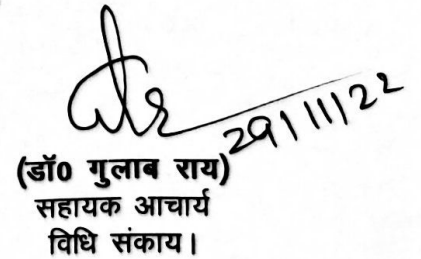 29/11/22
(डॉ0 गुलाब राय)
सहायक आचार्य
विधि संकाय।